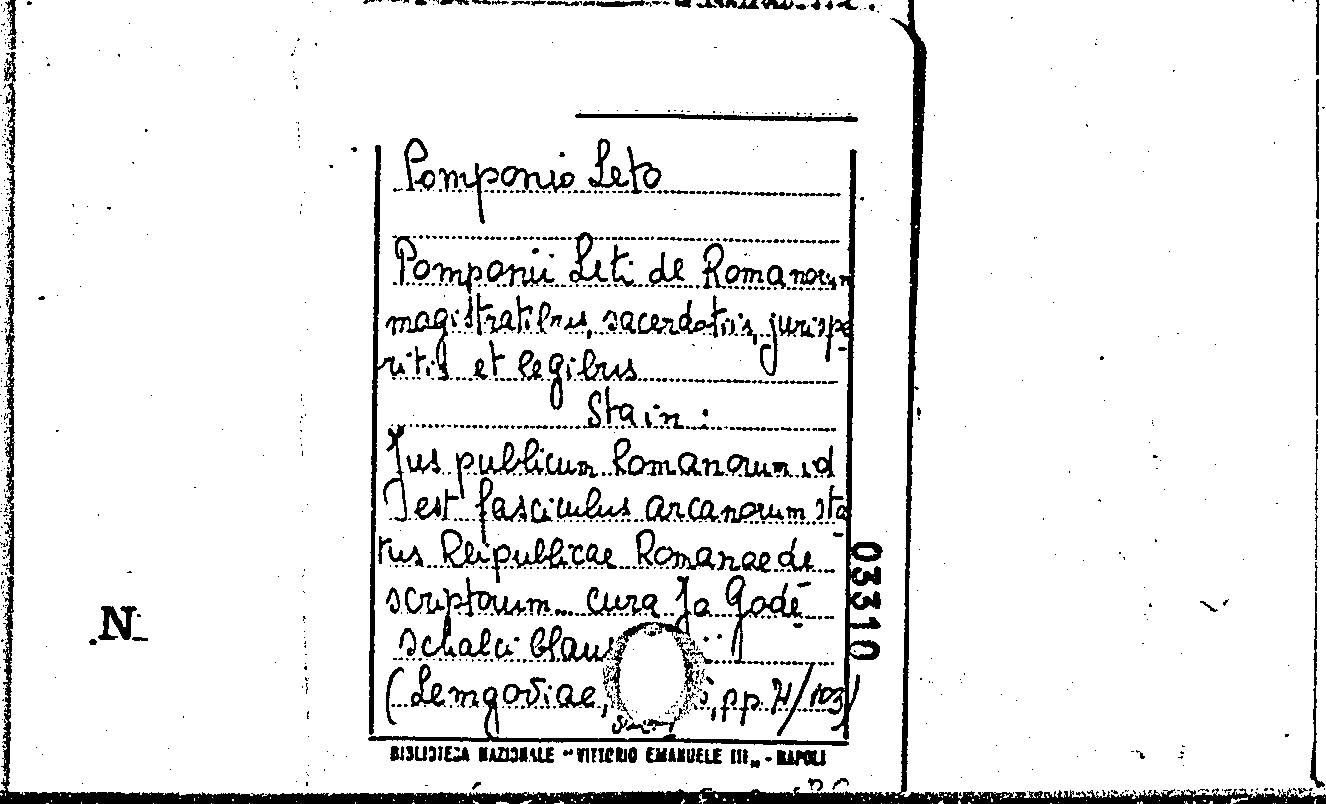 Pomponio Leto
Pomponii Leti de Romanorum
magistratibus, sacerdotiis, jurispe
ritis et legibus
Sta in:
Jus publicum Romanorum id
est fasciculus arcanorum sta
tus Reipublicae Romanae de
scriptorum cura Jo Gode
schalci
(Lemgoviae, pp. 71/103)
03310
N
BIBLIOTECA NAZIONALE "VITTORIO EMANUELE III" - NAPOLI